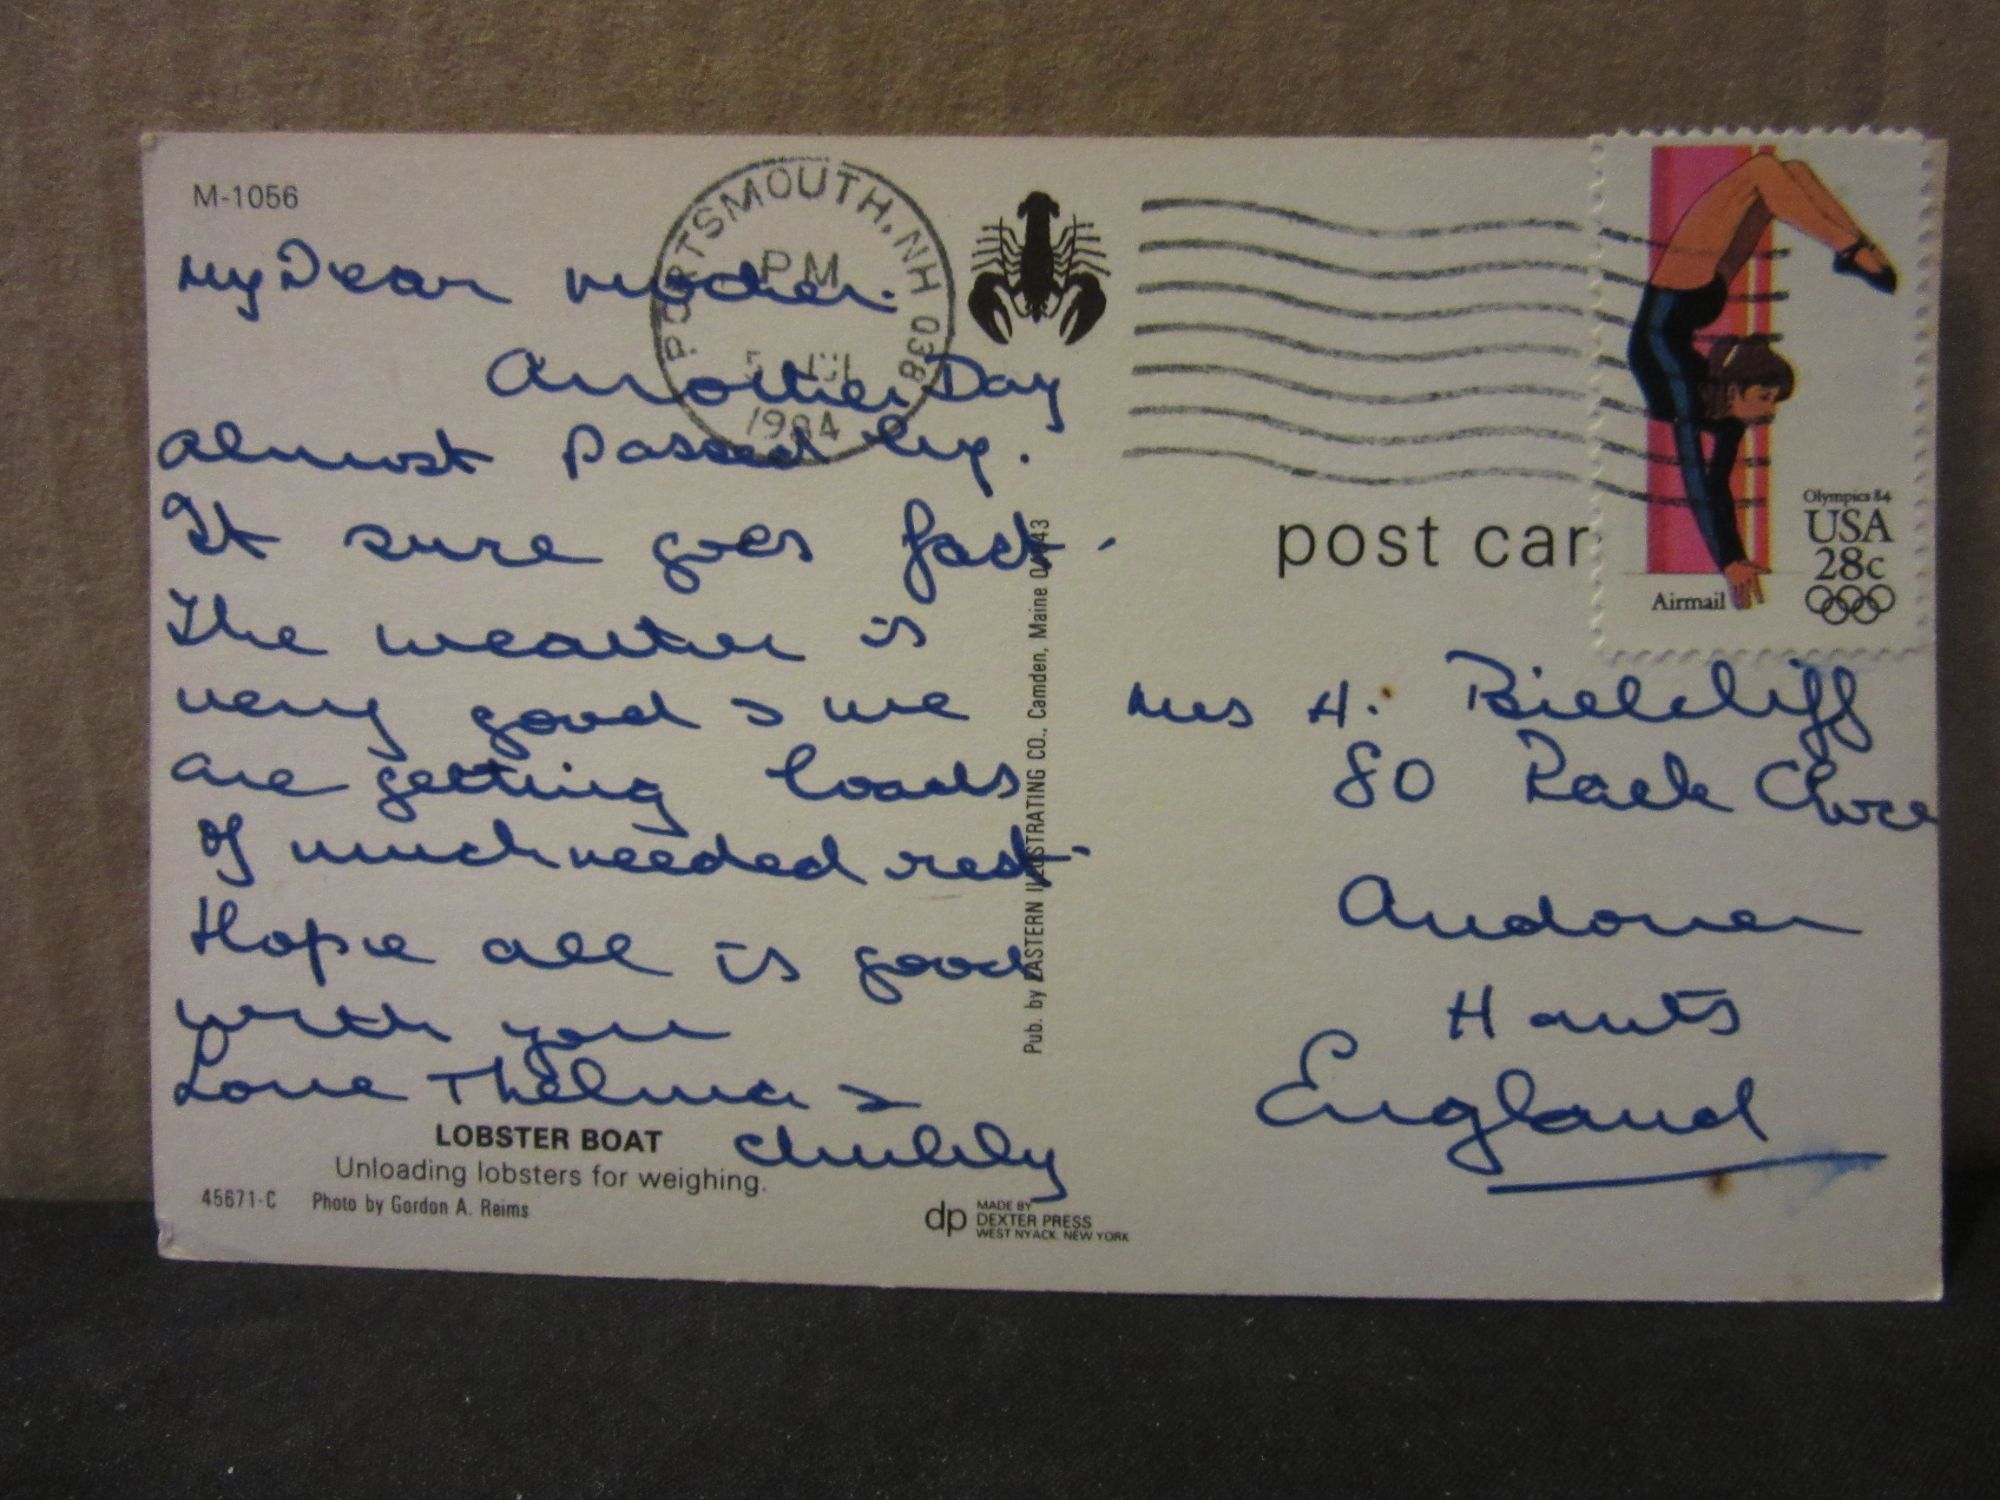 M-1056
My Dear Mother.
Another Day
almost passed by.
It sure goes fast.
The weather is
very good & we
are getting loads
of much needed rest.
Hope all is good
with you
Love Thelma &
chubby
LOBSTER BOAT
Unloading lobsters for weighing.
45671-C Photo by Gordon A. Reims
PORTSMOUTH, NH 038
PM
5 JUL
1984
Pub. by EASTERN ILLUSTRATING CO., Camden, Maine
dp MADE BY
DEXTER PRESS
WEST NYACK, NEW YORK
post car
Olympics 84
USA
28c
Airmail
Mrs H.
80
Andover
Hants
England